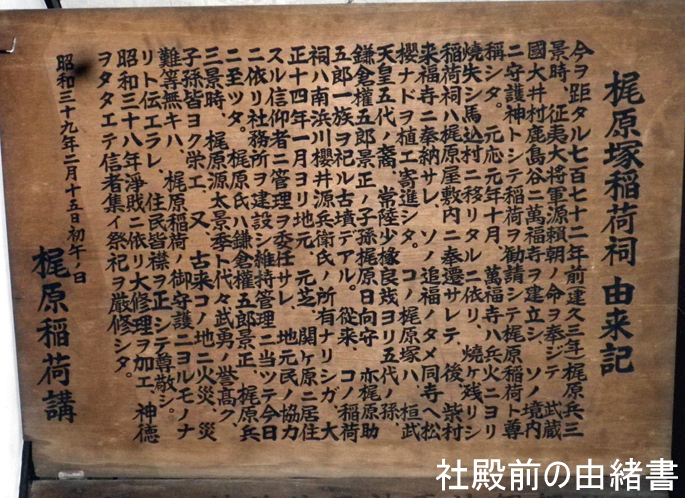 梶原塚稲荷祠 由来記
今ヲ距タル七百七十二年前建久三年梶原兵三
景時、征夷大将軍源頼朝ノ命ヲ奉ジテ 武蔵
國大井村鹿島谷ニ萬福寺ヲ建立シ、ソノ境内
ニ守護神トシテ稲荷ヲ勧請シテ梶原稲荷ト尊
稱シタ。元応元年十月、萬福寺ハ兵火ニヨリ
焼失シ馬込村ニ移リタルニ依リ、焼ケ残リシ
稲荷祠ハ梶原屋敷内ニ奉遷サレテ、後、柴村
来福寺ニ奉納サレ、ソノ追福ノタメ同寺ヘ松
櫻ナドヲ植エ寄進シタ。コノ梶原塚ハ、桓武
天皇五代ノ裔、常陸少掾良茂ヨリ五代ノ孫、
鎌倉權五郎景正ノ子孫梶原日向守 亦梶原助
五郎一族ヲ祀ル古墳デアル。従来、コノ稲荷
祠ハ南浜川櫻井源兵衛氏ノ所有ナリシガ、大
正十四年一月ヨリ地元、元芝、関ヶ原ニ居住
スル信仰者ニ管理ヲ委任サレ、地元民ノ協力
ニ依リ社務所ヲ建設シ維持管理ニ当ツテ今日
ニ至ツタ。梶原氏ハ鎌倉權五郎景正、梶原兵
三景時、梶原源太景季ト代々武勇ノ誉高ク、
子孫皆ヨク栄エ、又、古来コノ地ニ火災、災
難等無キハ、梶原稲荷ノ御守護ニヨルモノナ
リト伝エラレ、住民皆襟ヲ正シテ尊敬シ。
昭和三十八年浄財ニ依リ大修理ヲ加エ、神徳
ヲタタエテ信者集イ祭祀ヲ厳修シタ。
昭和三十九年二月十五日初午ノ日
梶原稲荷講
社殿前の由緒書